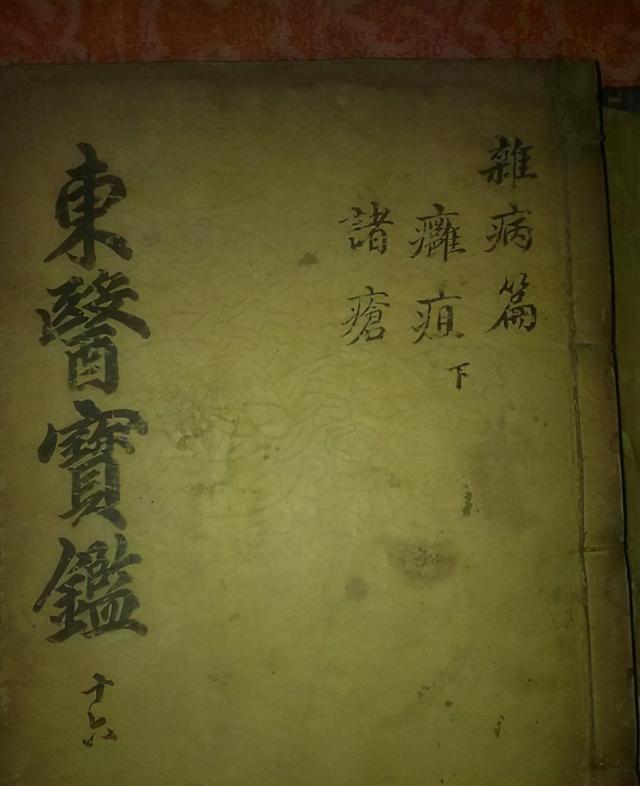 雜病篇
癰疽下
諸瘡
東醫寶鑑十六